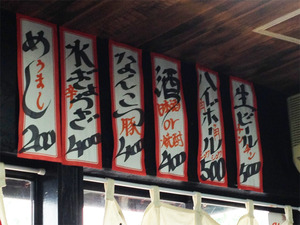 生ビール
500
ハイボール
500
酒
or
焼酎
400
なんこつ
豚
400
水ぎょうざ
400
めし
うまし
200